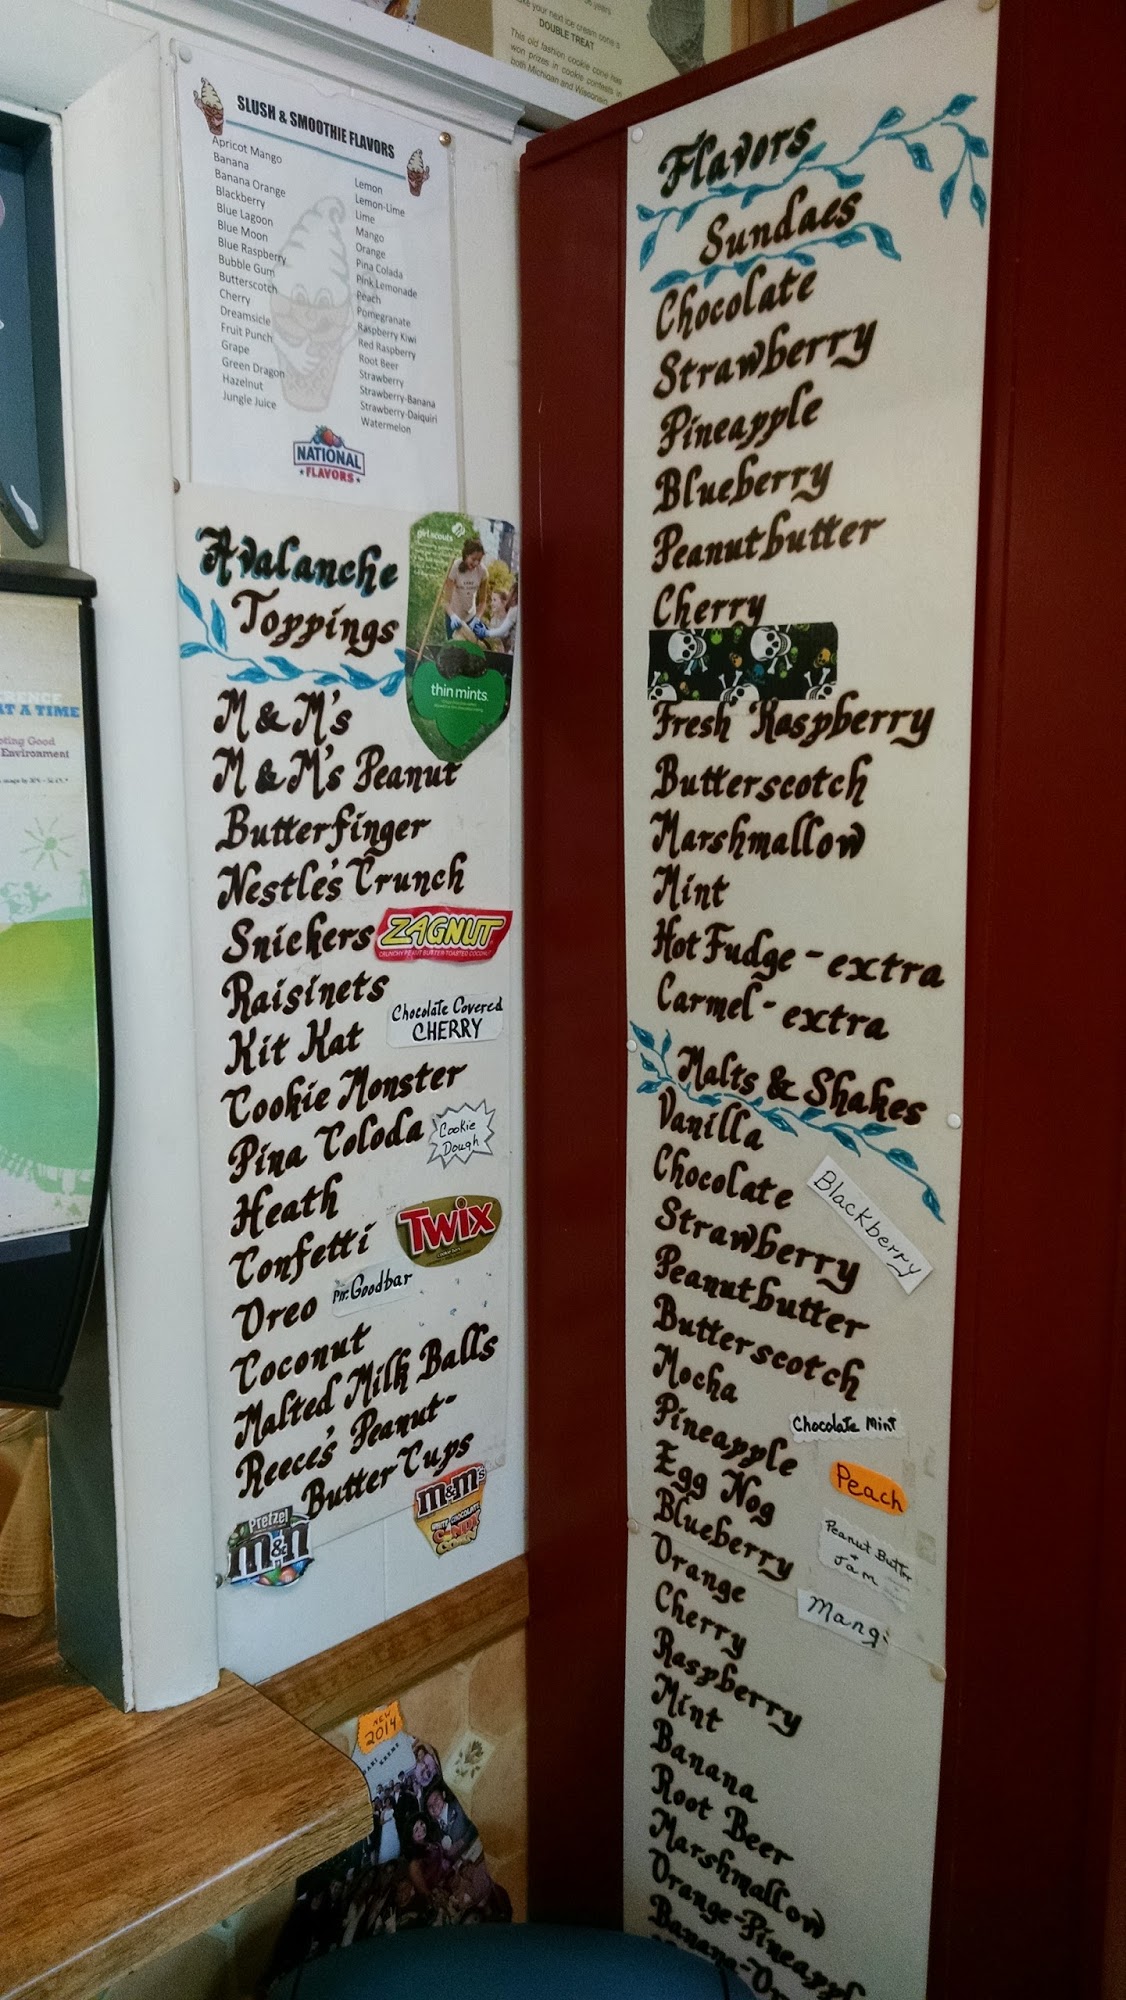 ake your next ice cream cone a
DOUBLE TREAT
This old fashion cookie cone has
won prizes in cookie contests in
both Michigan and Wisconsin.
SLUSH & SMOOTHIE FLAVORS
Apricot Mango
Banana
Banana Orange
Blackberry
Blue Lagoon
Blue Moon
Blue Raspberry
Bubble Gum
Butterscotch
Cherry
Dreamsicle
Fruit Punch
Grape
Green Dragon
Hazelnut
Jungle Juice
Lemon
Lemon-Lime
Lime
Mango
Orange
Pina Colada
Pink Lemonade
Peach
Pomegranate
Raspberry Kiwi
Red Raspberry
Root Beer
Strawberry
Strawberry-Banana
Strawberry-Daiquiri
Watermelon
NATIONAL
FLAVORS
Avalanche
Toppings
girl scouts
thin mints
M & M's
M & M's Peanut
Butterfinger
Nestle's Crunch
Snickers
ZAGNUT
CRUNCHY PEANUT BUTTER TOASTED COCONUT
Raisinets
Chocolate Covered
CHERRY
Kit Kat
Cookie Monster
Pina Coloda
Cookie
Dough
Heath
TWIX
Confetti
Oreo
Mr. Goodbar
Coconut
Malted Milk Balls
Reece's Peanut-
Butter Cups
Pretzel
m&m
M&M's
WHITE CHOCOLATE
CANDY
CORN
Flavors
Sundaes
Chocolate
Strawberry
Pineapple
Blueberry
Peanutbutter
Cherry
Fresh Raspberry
Butterscotch
Marshmallow
Mint
Hot Fudge - extra
Carmel - extra
Malts & Shakes
Vanilla
Chocolate
Blackberry
Strawberry
Peanutbutter
Butterscotch
Mocha
Chocolate Mint
Pineapple
Peach
Egg Nog
Peanut Butter
+
Jam
Blueberry
Mang
Orange
Cherry
Raspberry
Mint
Banana
Root Beer
Marshmallow
Orange-Pineappl
Banana-Or
ERENCE
AT A TIME
oting Good
Environment
NEW
2014